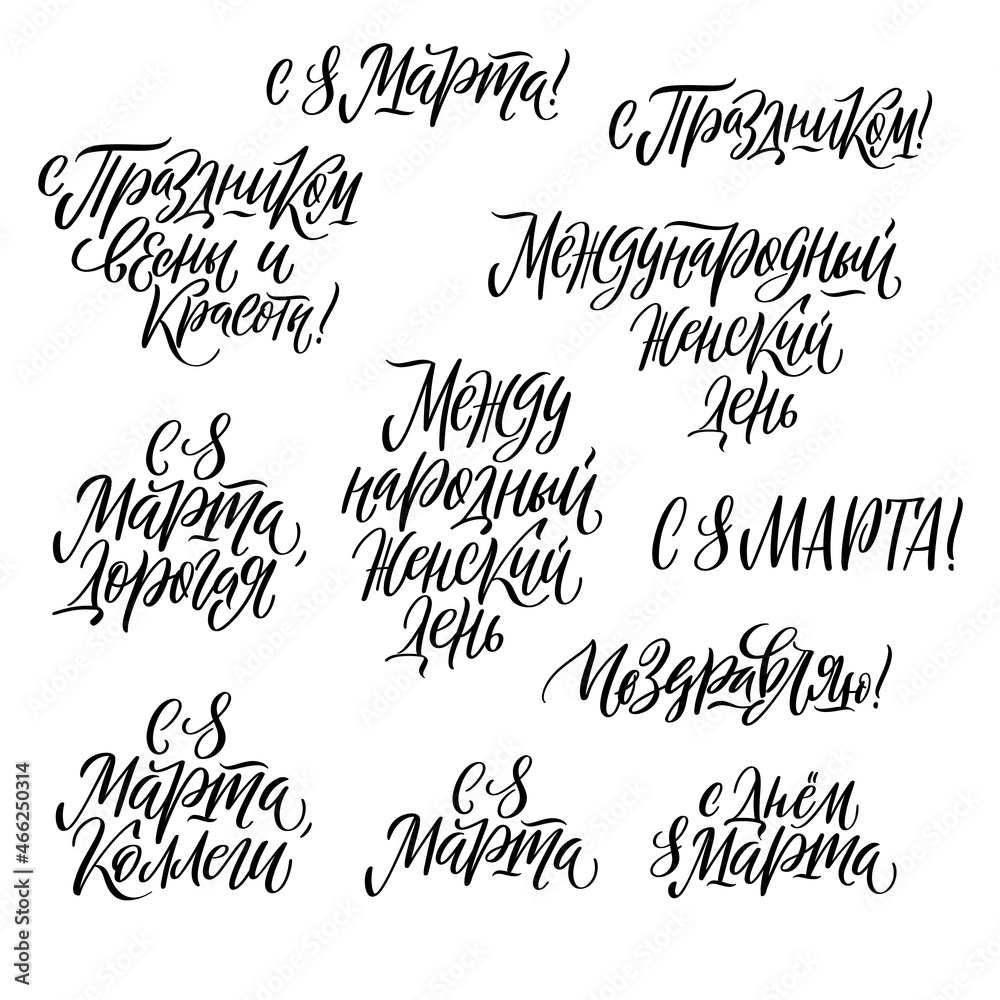 С 8 Марта!
с Праздником!
с Праздником
весны и
Красоты!
Международный
Женский
день
Между
народный
Женский
день
С 8
Марта,
Дорогая
С 8 МАРТА!
Поздравляю!
С 8
Марта,
Коллеги
С 8
Марта
с Днём
8 Марта
Adobe Stock | #466250314